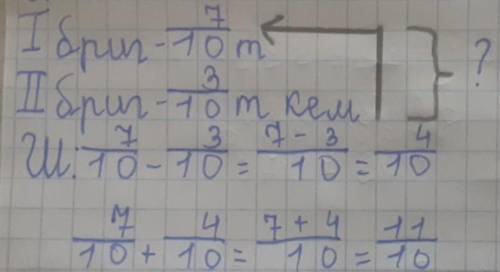 I бриг - 7/10 т
II бриг - 3/10 т кем ?
Ш: 7/10 - 3/10 = 7 - 3/10 = 4/10
7/10 + 4/10 = 7 + 4/10 = 11/10